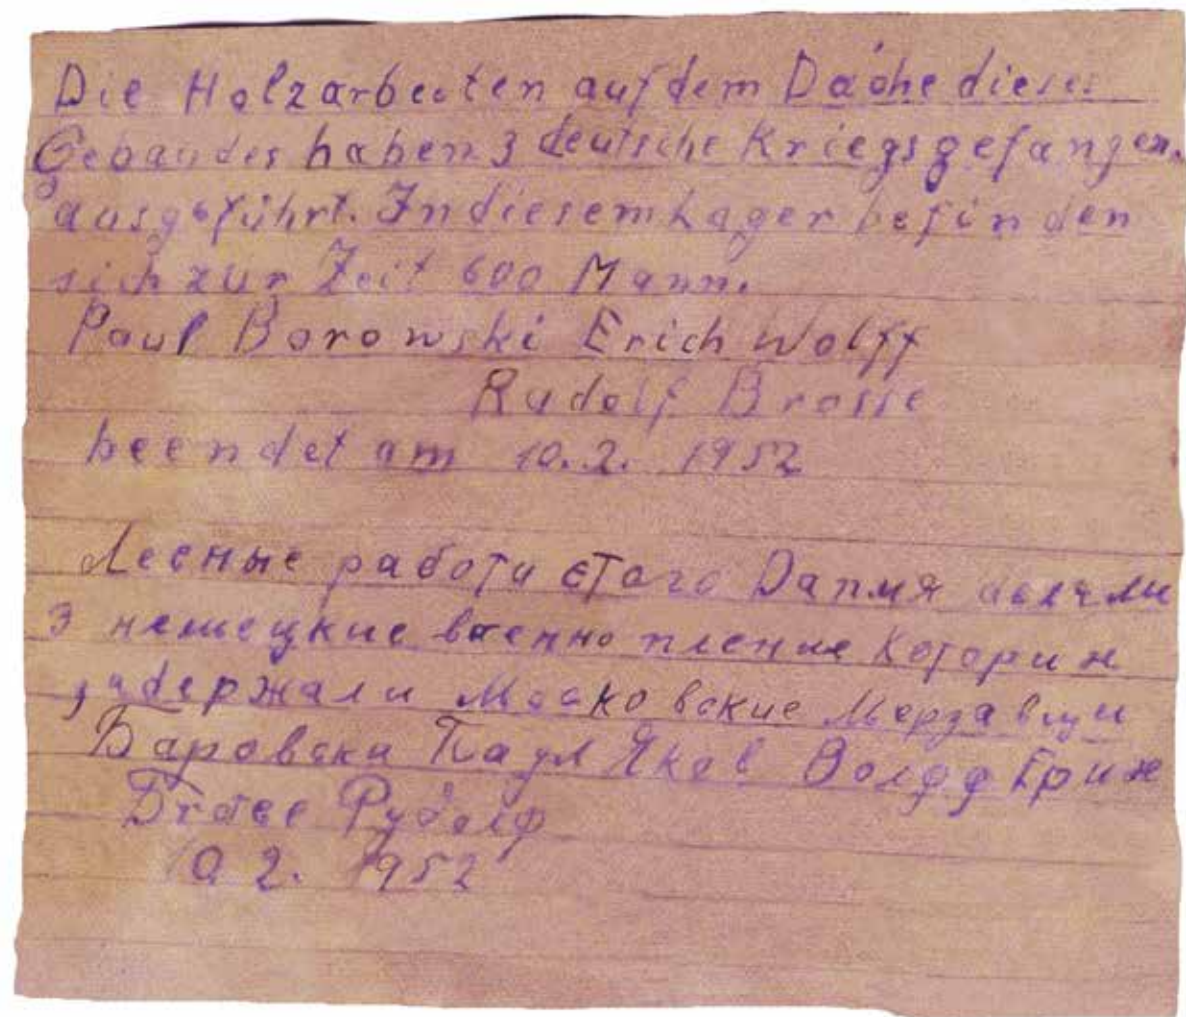 Die Holzarbeiten auf dem Dache dieses
Gebäudes haben 3 deutsche Kriegsgefangen.
ausgeführt. In diesem Lager befinden
sich zur Zeit 600 Mann.
Paul Borowski Erich Wolff
Rudolf Brosse
beendet am 10.2. 1952
Лесные работи етого
3 немецкие военно пление Которих
задержали Московские Мерзавци
Баровски Паул Яков Волфф Ерих
Рудолф
10 2. 1952